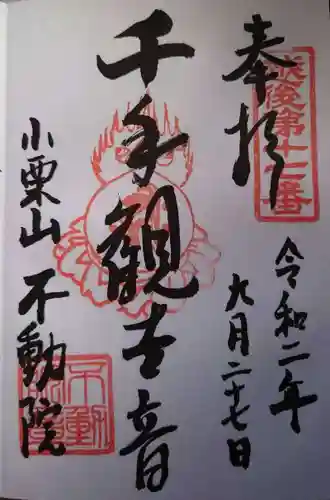 奉拝
越後第十二番
令和二年
九月二十七日
千手観世音
小栗山 不動院